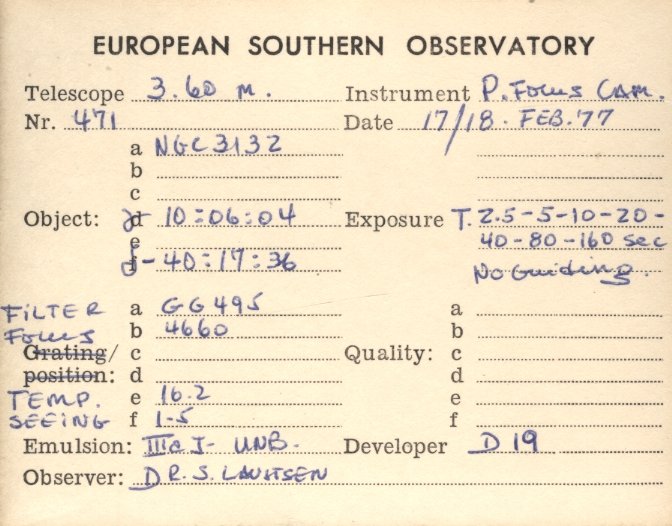 EUROPEAN SOUTHERN OBSERVATORY
Telescope 3.60 M. Instrument P. Focus CAM.
Nr. 471 Date 17/18. FEB. '77
a NGC 3132
b
c
Object: d α 10:06:04 Exposure T. 2.5-5-10-20-
e 40-80-160 sec
f δ -40:17:36 No Guiding.
FILTER a GG495 a
Focus b 4660 b
Grating/ c Quality: c
position: d d
TEMP. e 16.2 e
SEEING f 1-5 f
Emulsion: IIIa J- UNB. Developer D 19
Observer: DR. S. LAUSTSEN